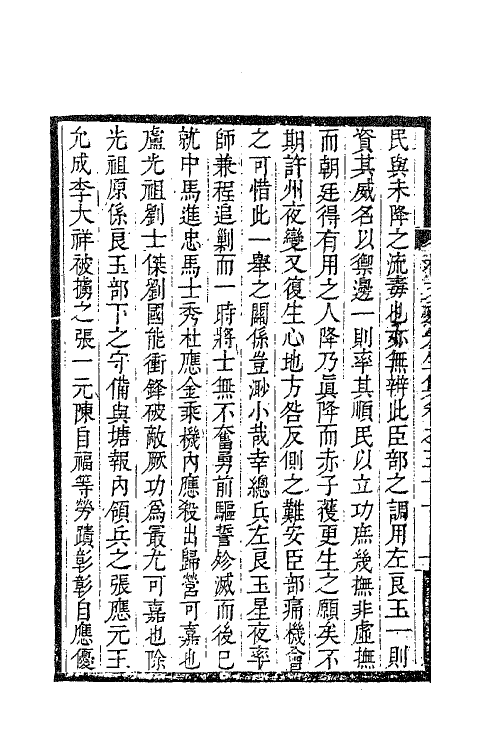 民與未降之流毒也亦無辨此臣部之調用左良玉一則
資其威名以禦邊一則率其順民以立功庶幾撫非虛撫
而朝廷得有用之人降乃眞降而赤子獲更生之願矣不
期許州夜變又復生心地方咎反側之難安臣部痛機會
之可惜此一舉之關係豈渺小哉幸總兵左良玉星夜率
師兼程追剿而一時將士無不奮勇前驅誓殄滅而後已
就中馬進忠馬士秀杜應金乘機內應殺出歸營可嘉也
盧光祖劉士傑劉國能衝鋒破敵厥功爲最尤可嘉也除
光祖原係良玉部下之守備與塘報內領兵之張應元王
允成李大祥被擄之張一元陳自福等勞蹟彰彰自應優